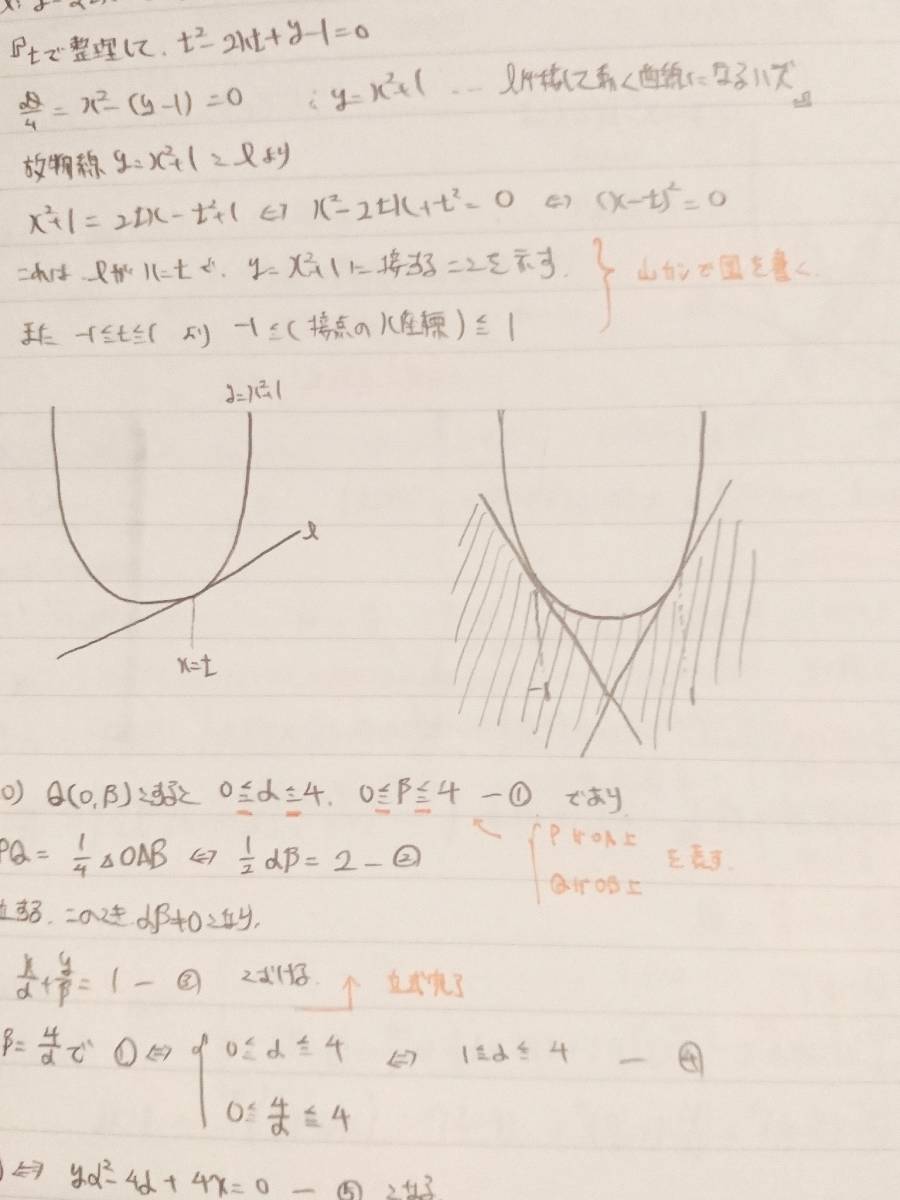 tで整理して. t²-2xt+y-1=0
D/4 = x²-(y-1)=0 ∴ y=x²+1 … lが接して動く曲線になるハズ
放物線 y=x²+1 と l より
x²+1=2tx-t²+1 ⇔ x²-2tx+t²=0 ⇔ (x-t)²=0
これは lが x=t で. y=x²+1 に接することを示す. 山カンで図を書く.
また -1≦t≦1 より -1≦(接点のx座標)≦1
y=x²+1
l
x=t
-1
1
0) Q(0,β)とすると 0≦α≦4. 0≦β≦4 -① であり
PQ = 1/4 △OAB ⇔ 1/2 αβ=2 -②
PはOA上
QはOB上
を表す.
する. このとき αβ≠0となり.
x/α + y/β = 1 - ③ とかける. 立式完了
β=4/α で ① ⇔ { 0≦α≦4 ⇔ 1≦α≦4 - ④
0≦4/α≦4
⇔ yα²-4α+4x=0 - ⑤ となる